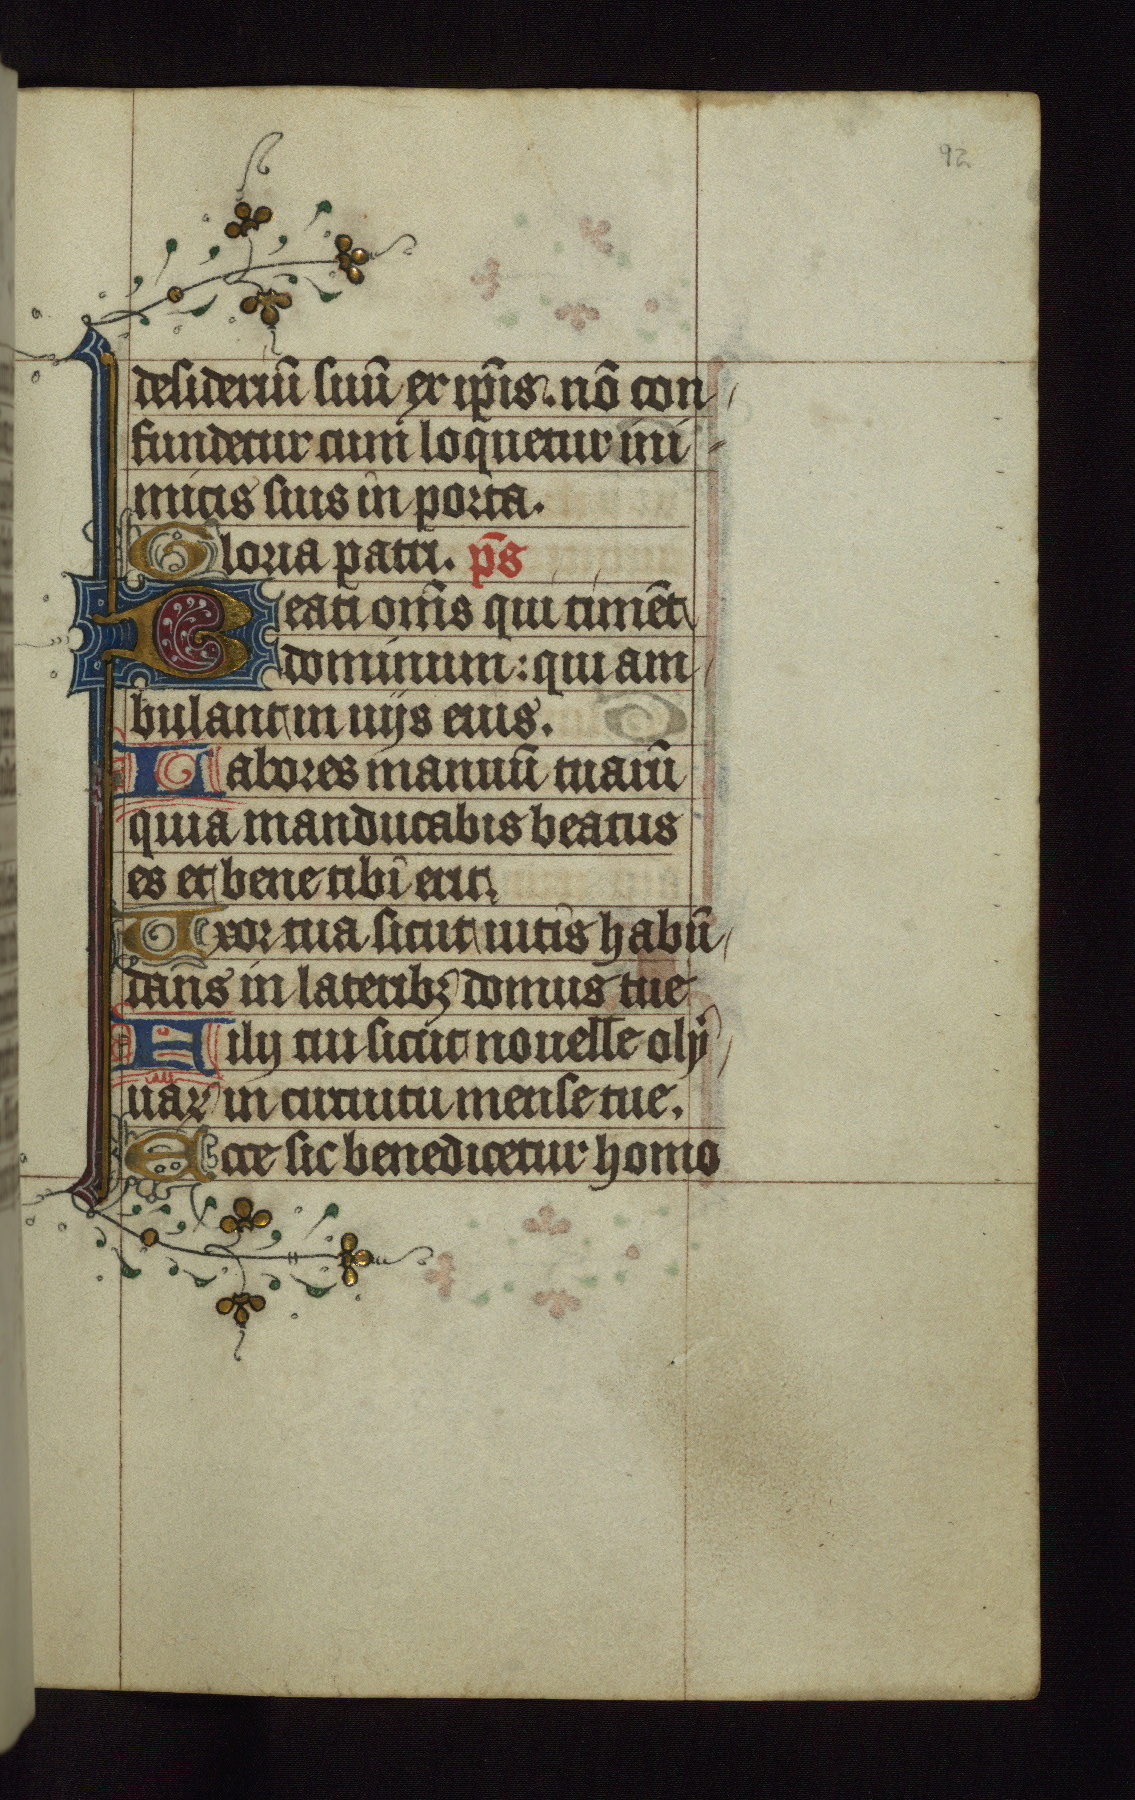 92
desideriū suū ex ip̄is. nō con
fundetur cum loquetur ini
micis suis in porta.
Gloria patri. p̄s
Beati om̄s qui timēt
dominum: qui am
bulant in uijs eius.
Labores manuū tuarū
quia manducabis beatus
es et bene tibi erit.
Uxor tua sicut uitis habū
dans in lateribꝫ domus tue
Filij tui sicut nouelle oli
uaꝝ in circuitu mense tue.
Ecce sic benedicetur homo